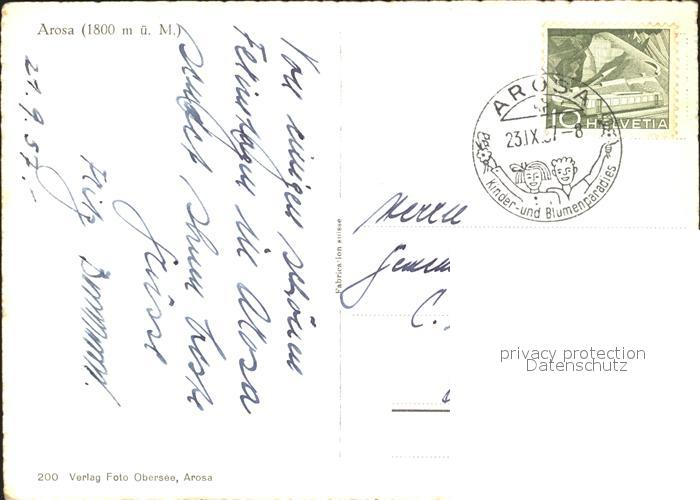 Arosa (1800 m ü. M.)
21.9.57.-
Von einigen schönen
Ferientagen in Arosa
sendet Ihnen beste
Grüsse
Fritz
Fabrication suisse
Herrn
C.
AROSA
23.IX.57-8
Kinder- und Blumenparadies
10 HELVETIA
privacy protection
Datenschutz
200 Verlag Foto Obersee, Arosa